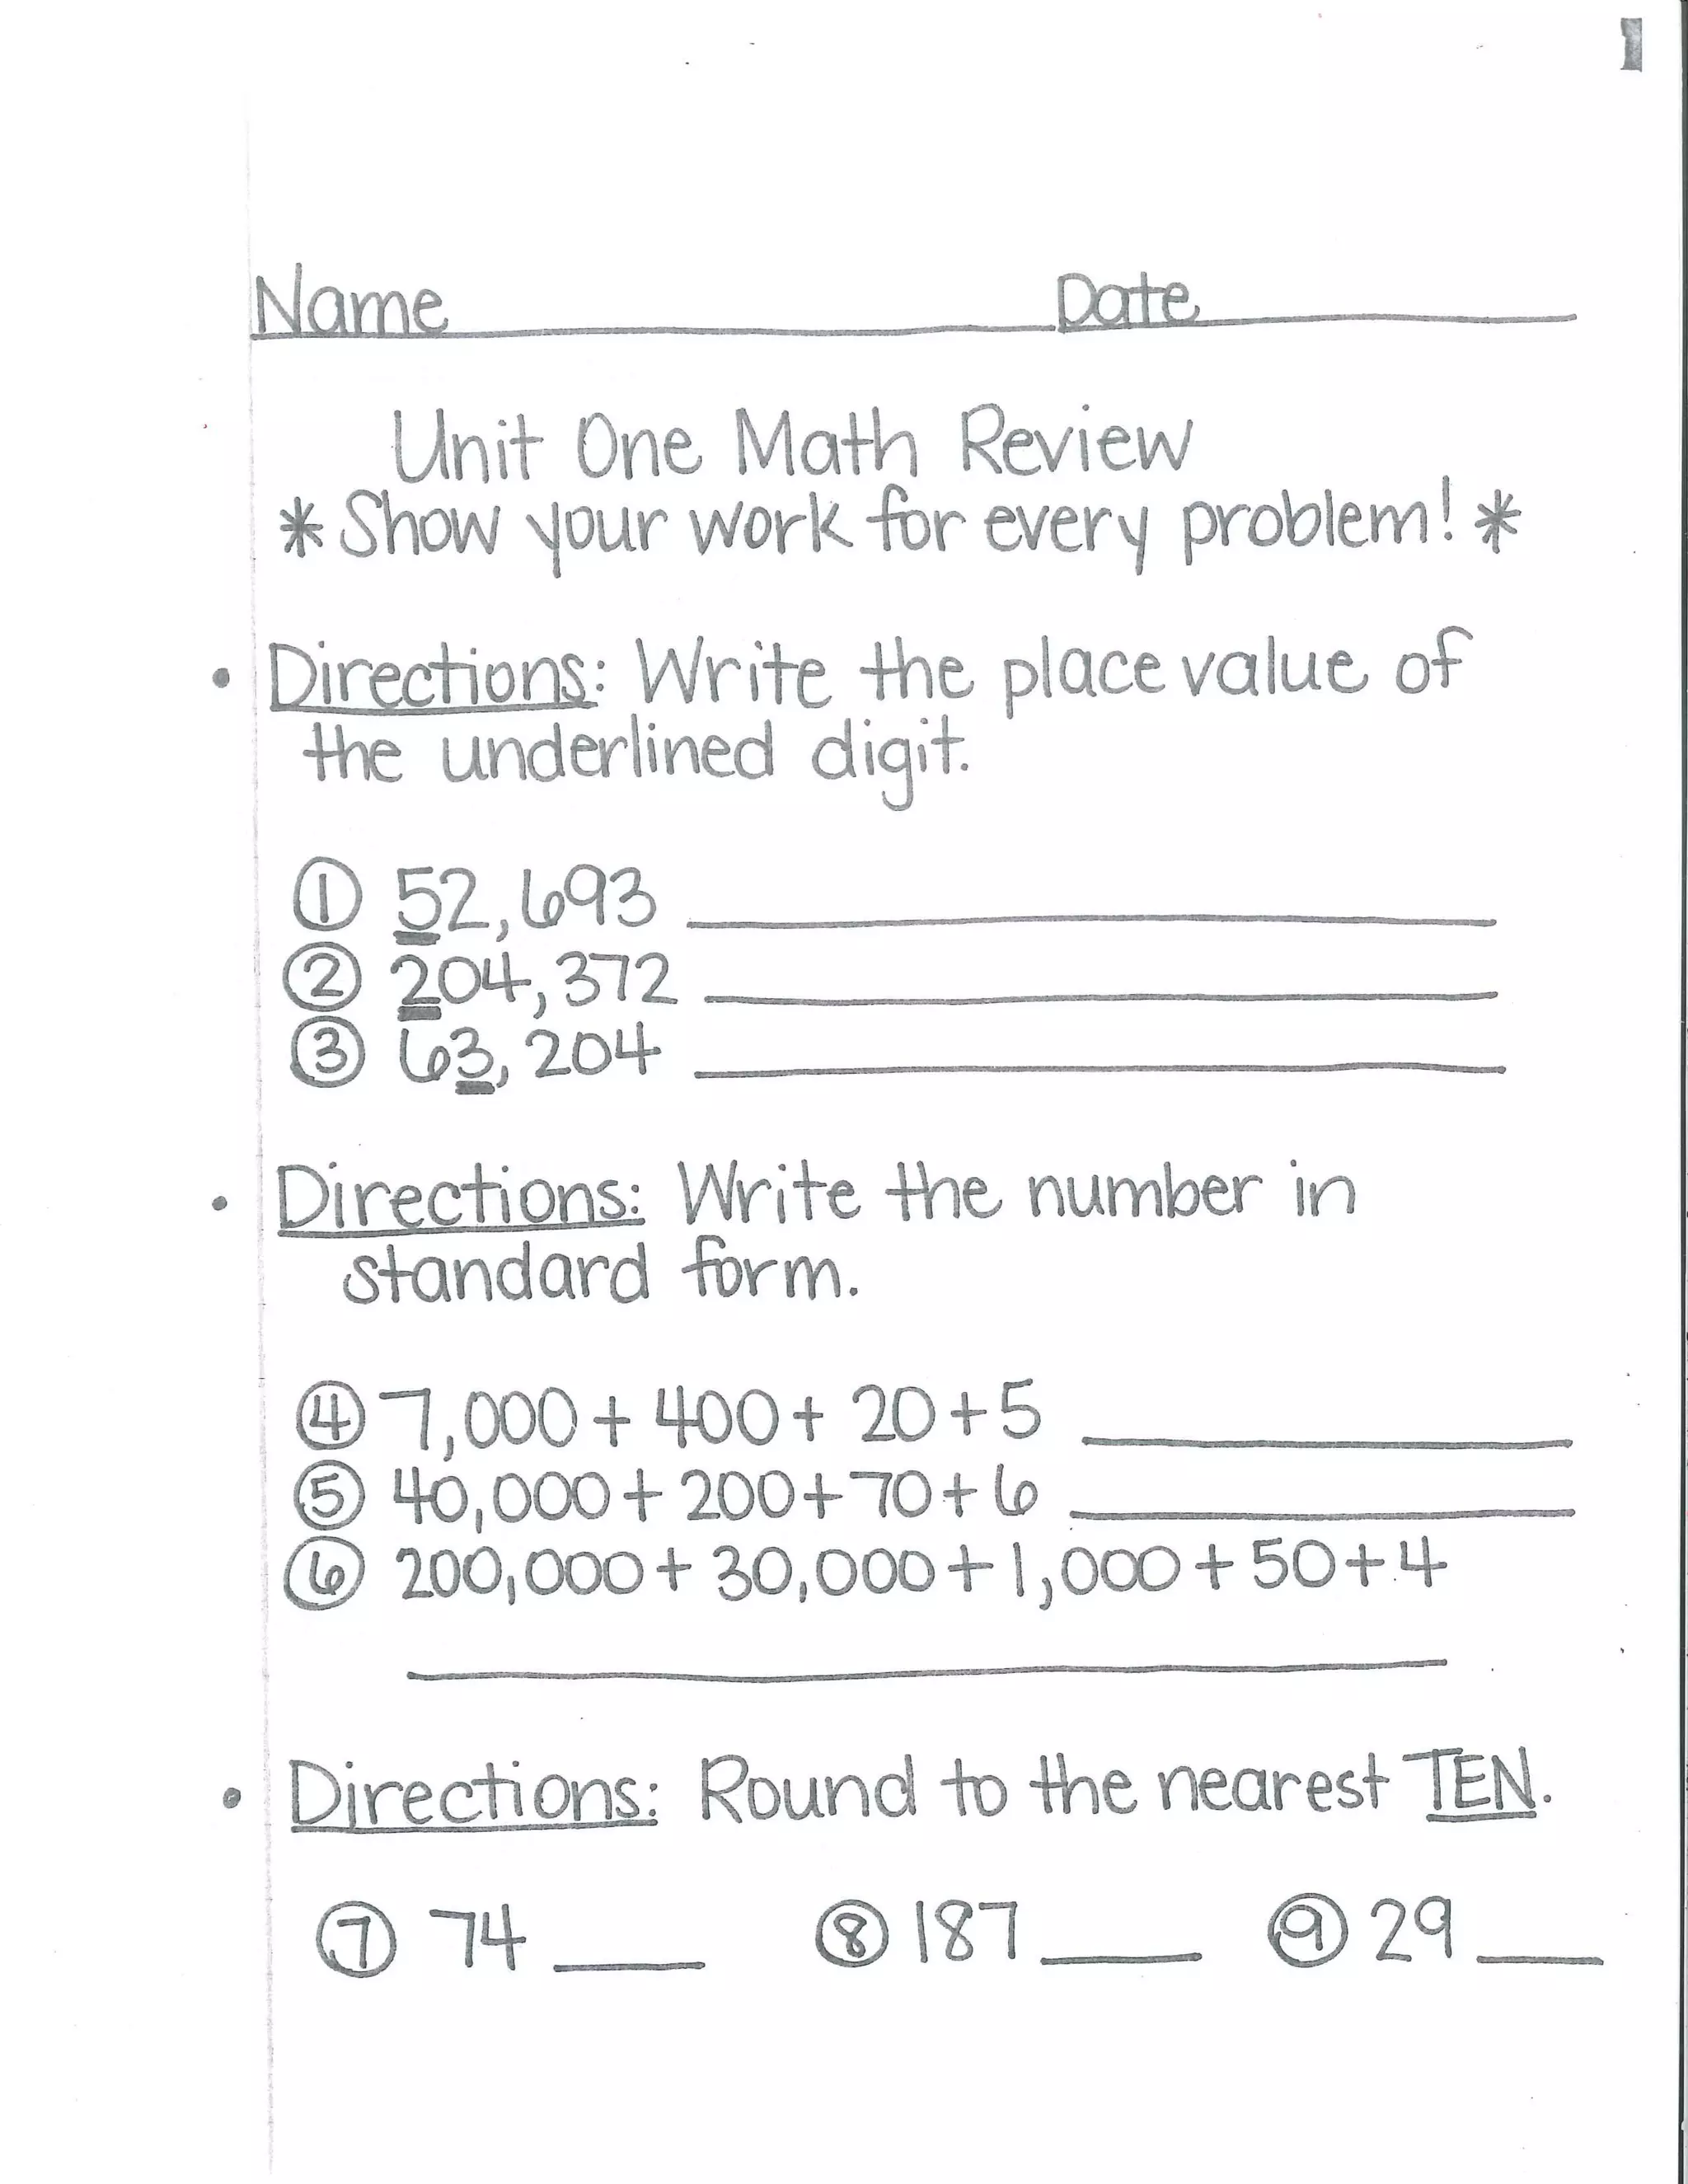 1
Name Date
Unit One Math Review
* Show your work for every problem! *
• Directions: Write the place value of
the underlined digit.
① 52,693
② 204,372
③ 63,204
• Directions: Write the number in
standard form.
④ 7,000 + 400 + 20 + 5
⑤ 40,000 + 200 + 70 + 6
⑥ 200,000 + 30,000 + 1,000 + 50 + 4
• Directions: Round to the nearest TEN.
⑦ 74 ⑧ 187 ⑨ 29